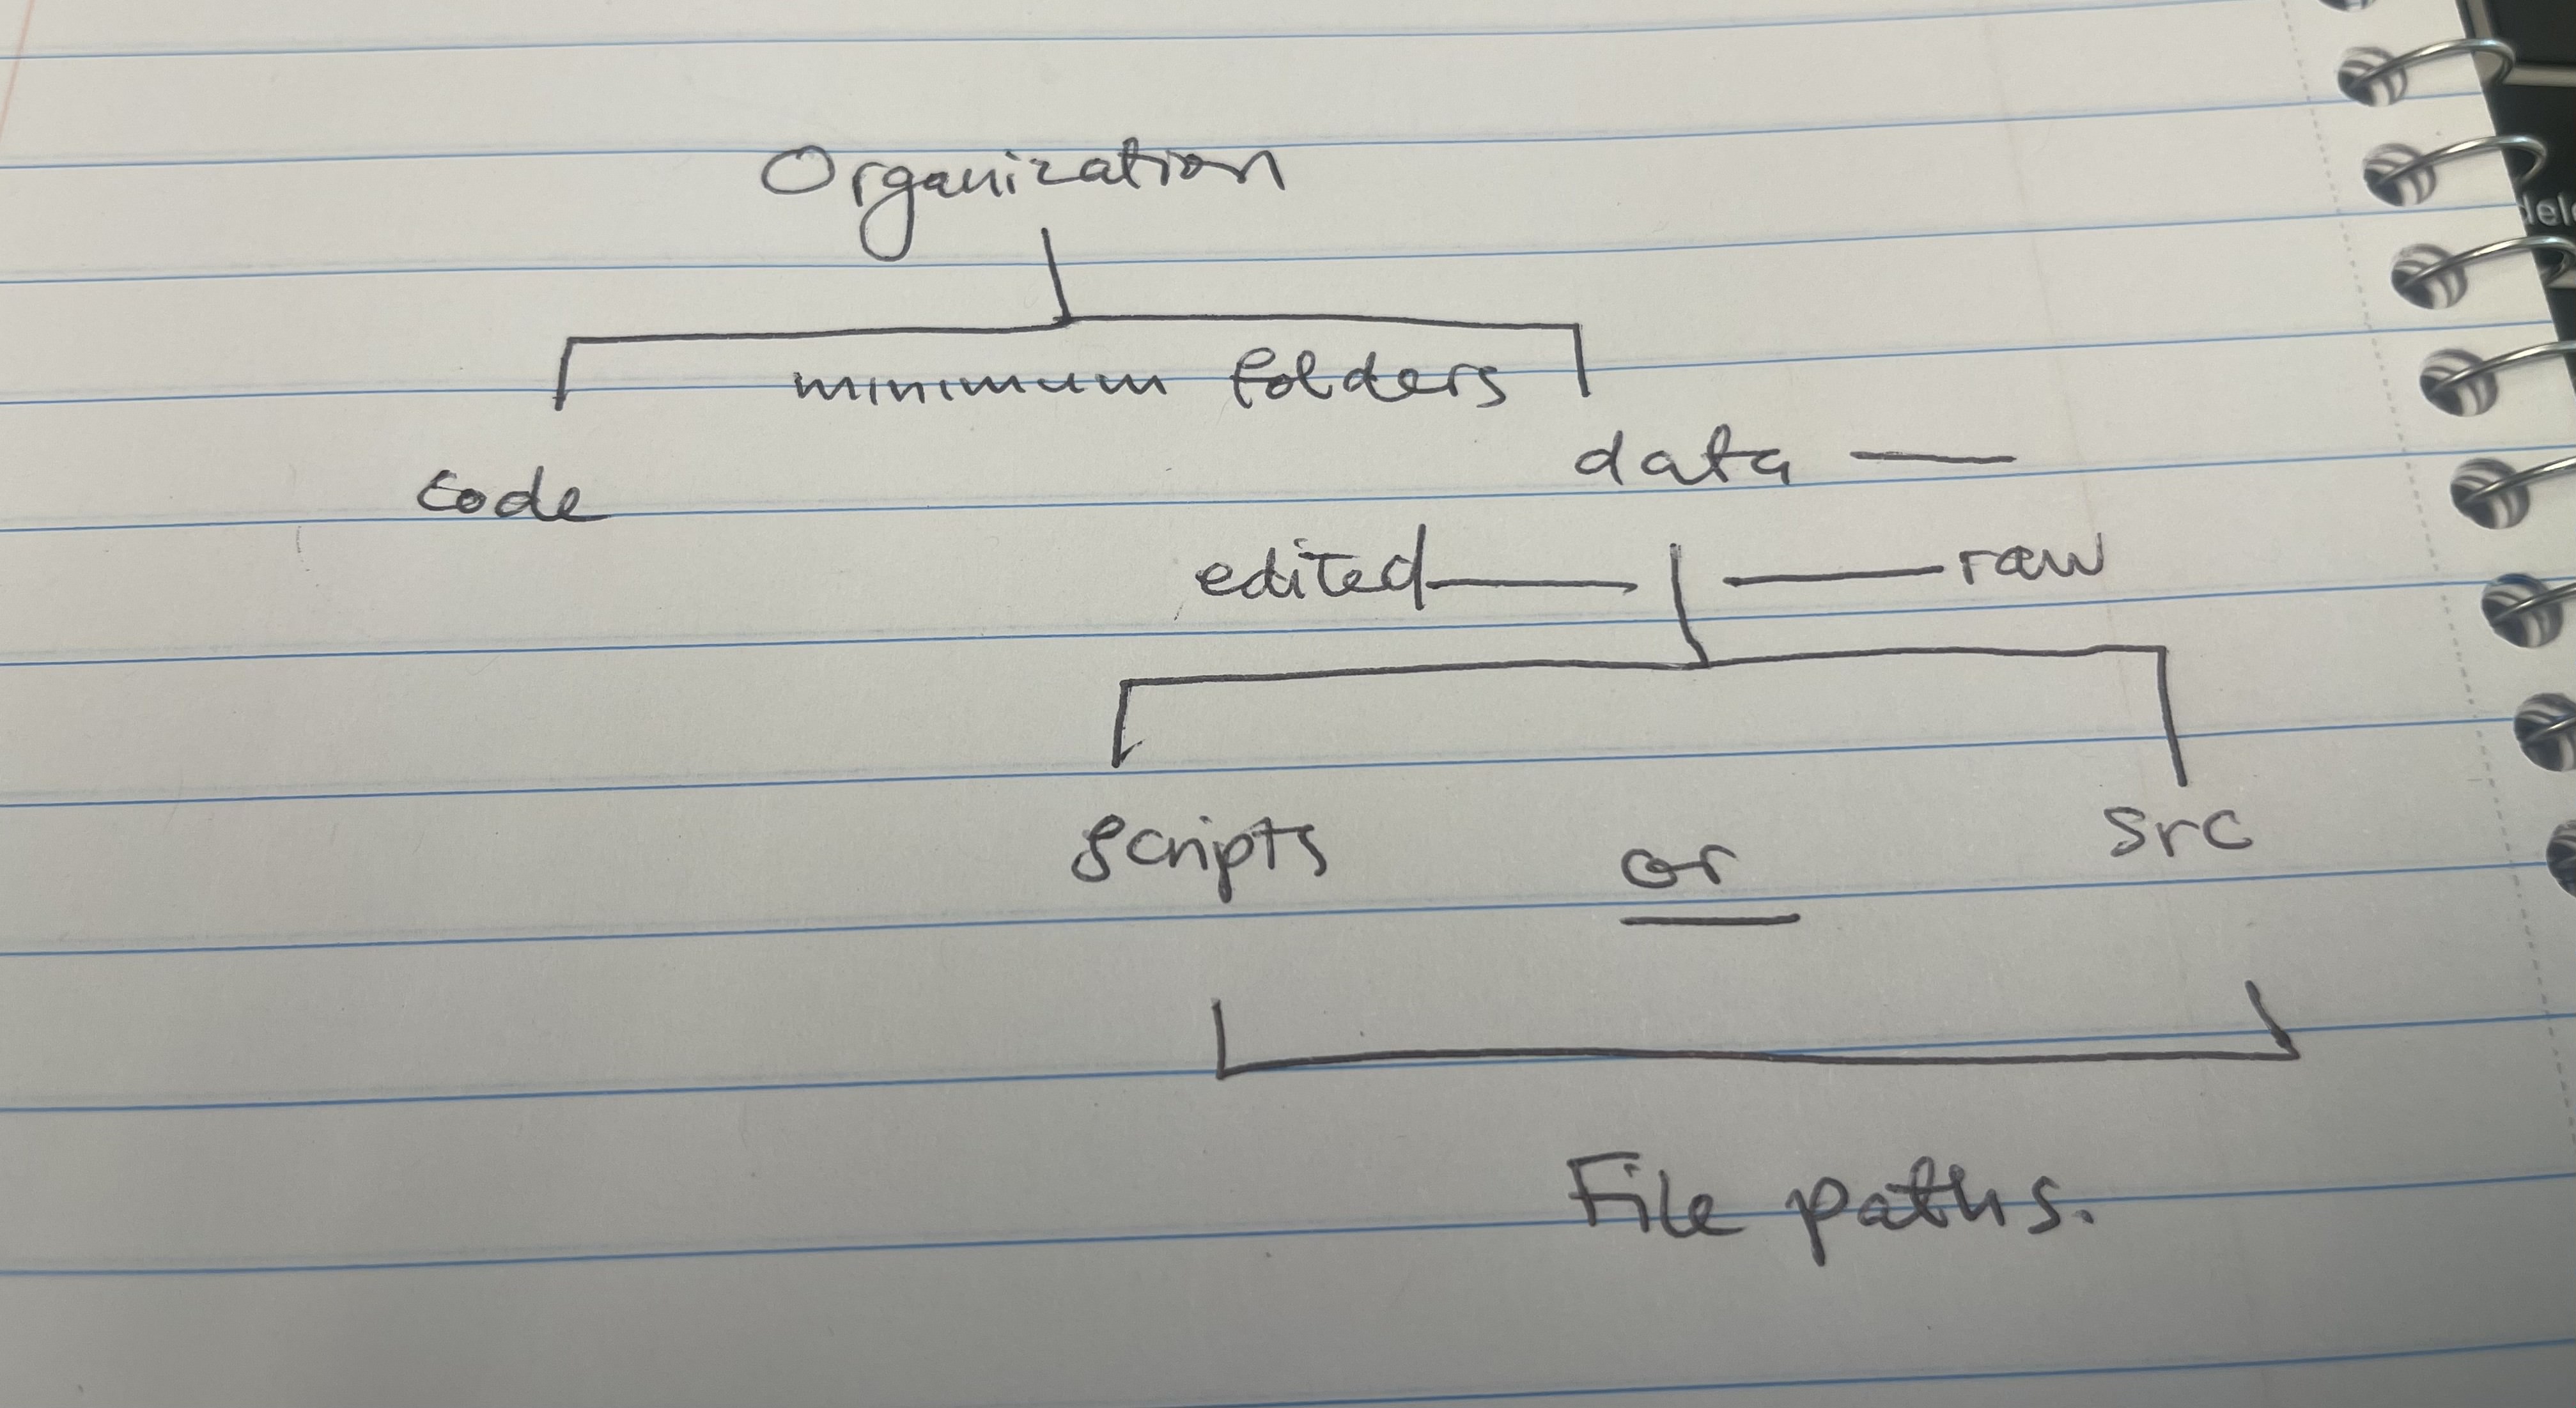 Organization
minimum folders
code
data —
edited — | — raw
scripts or src
File paths.